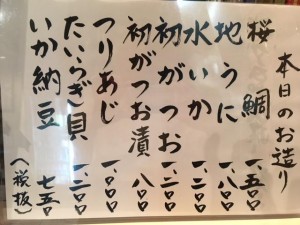 本日のお造り
桜鯛 一、五〇〇
地うに 一、八〇〇
水いか 一、二〇〇
初がつお 一、二〇〇
初がつお漬 八〇〇
つりあじ 一、〇〇〇
たいらぎ貝 一、二〇〇
いか納豆 七五〇
(税抜)